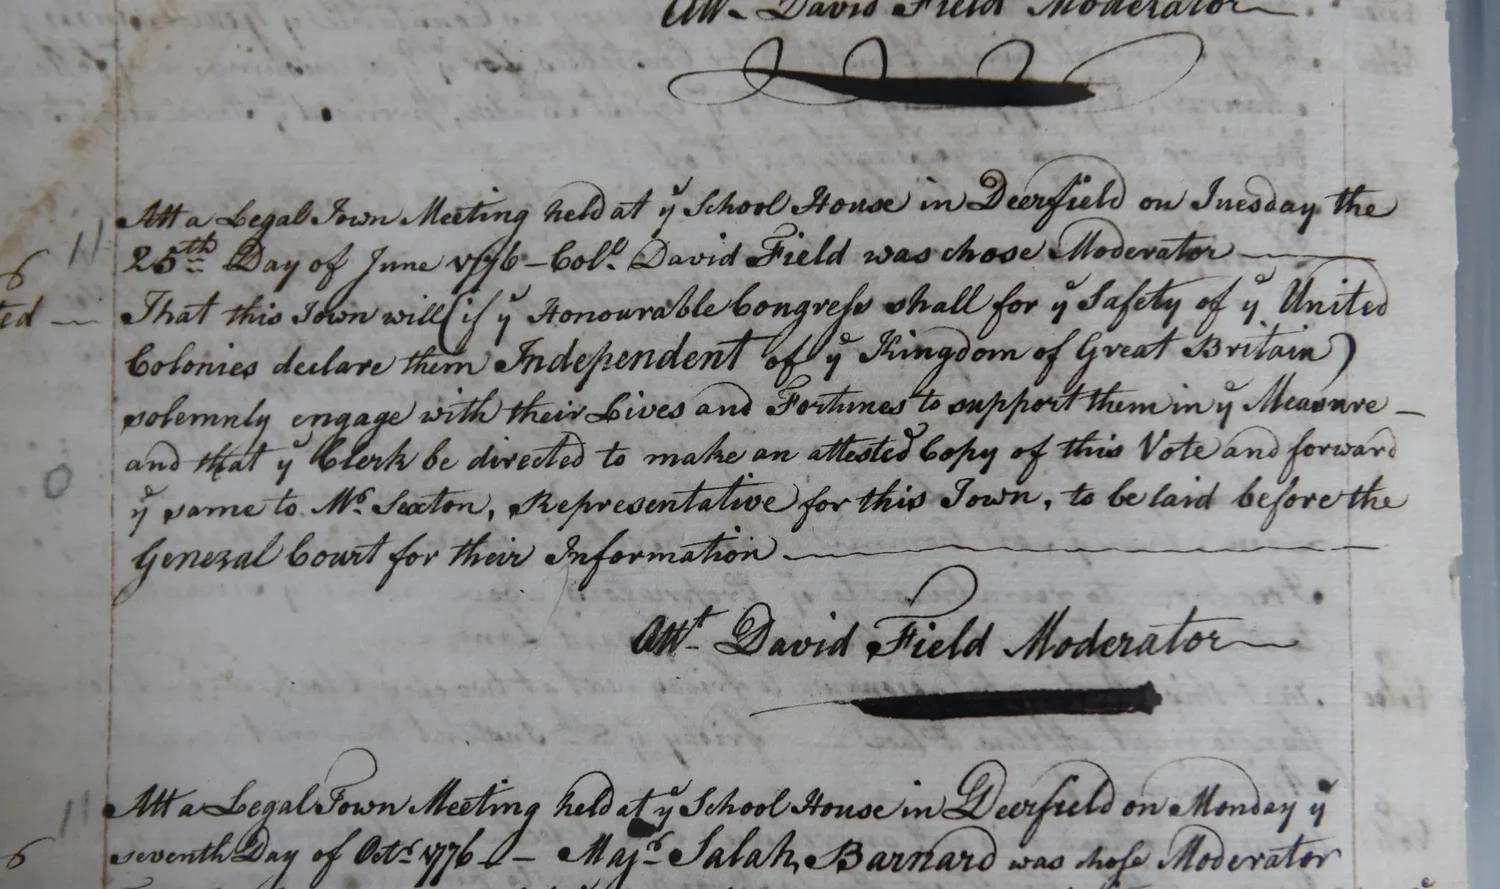 Att. David Field Moderator
Att a Legal Town Meeting held at ye School House in Deerfield on Tuesday the
25th Day of June 1776 - Colo. David Field was chose Moderator
That this Town will (if ye Honourable Congress shall for ye Safety of ye United
Colonies declare them Independent of ye Kingdom of Great Britain)
solemnly engage with their Lives and Fortunes to support them in ye Measure -
and that ye Clerk be directed to make an attested Copy of this Vote and forward
ye same to Mr. Sexton, Representative for this Town, to be laid before the
General Court for their Information
Attt. David Field Moderator
Att a Legal Town Meeting held at ye School House in Deerfield on Monday ye
seventh Day of Octr. 1776 - - Majr. Salah Barnard was chose Moderator